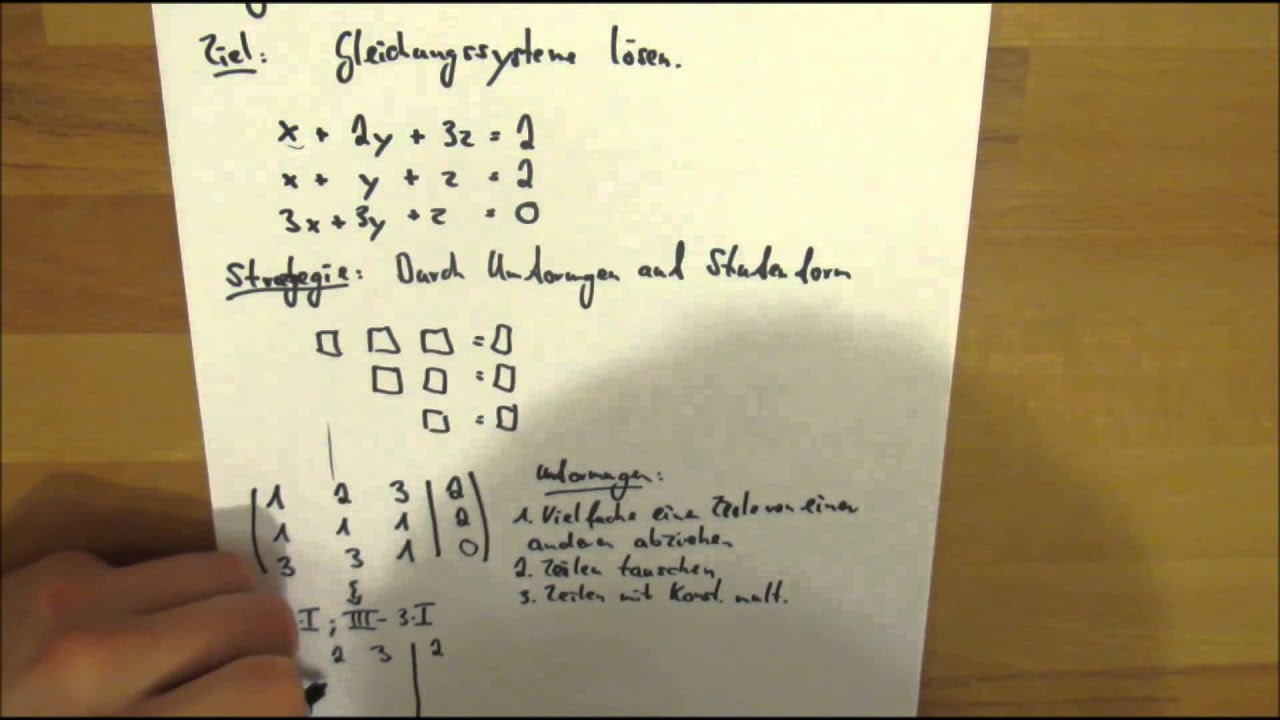 Ziel: Gleichungssysteme lösen.
x + 2y + 3z = 2
x + y + z = 2
3x + 3y + z = 0
Strategie: Durch Umformungen auf Stufenform
= 
= 
= 
1 2 3 | 2
1 1 1 | 2
3 3 1 | 0
Umformungen:
1. Vielfache eine Zeile von einer
anderen abziehen
2. Zeilen tauschen
3. Zeilen mit Konst. mult.
-I ; III - 3·I
2 3 | 2